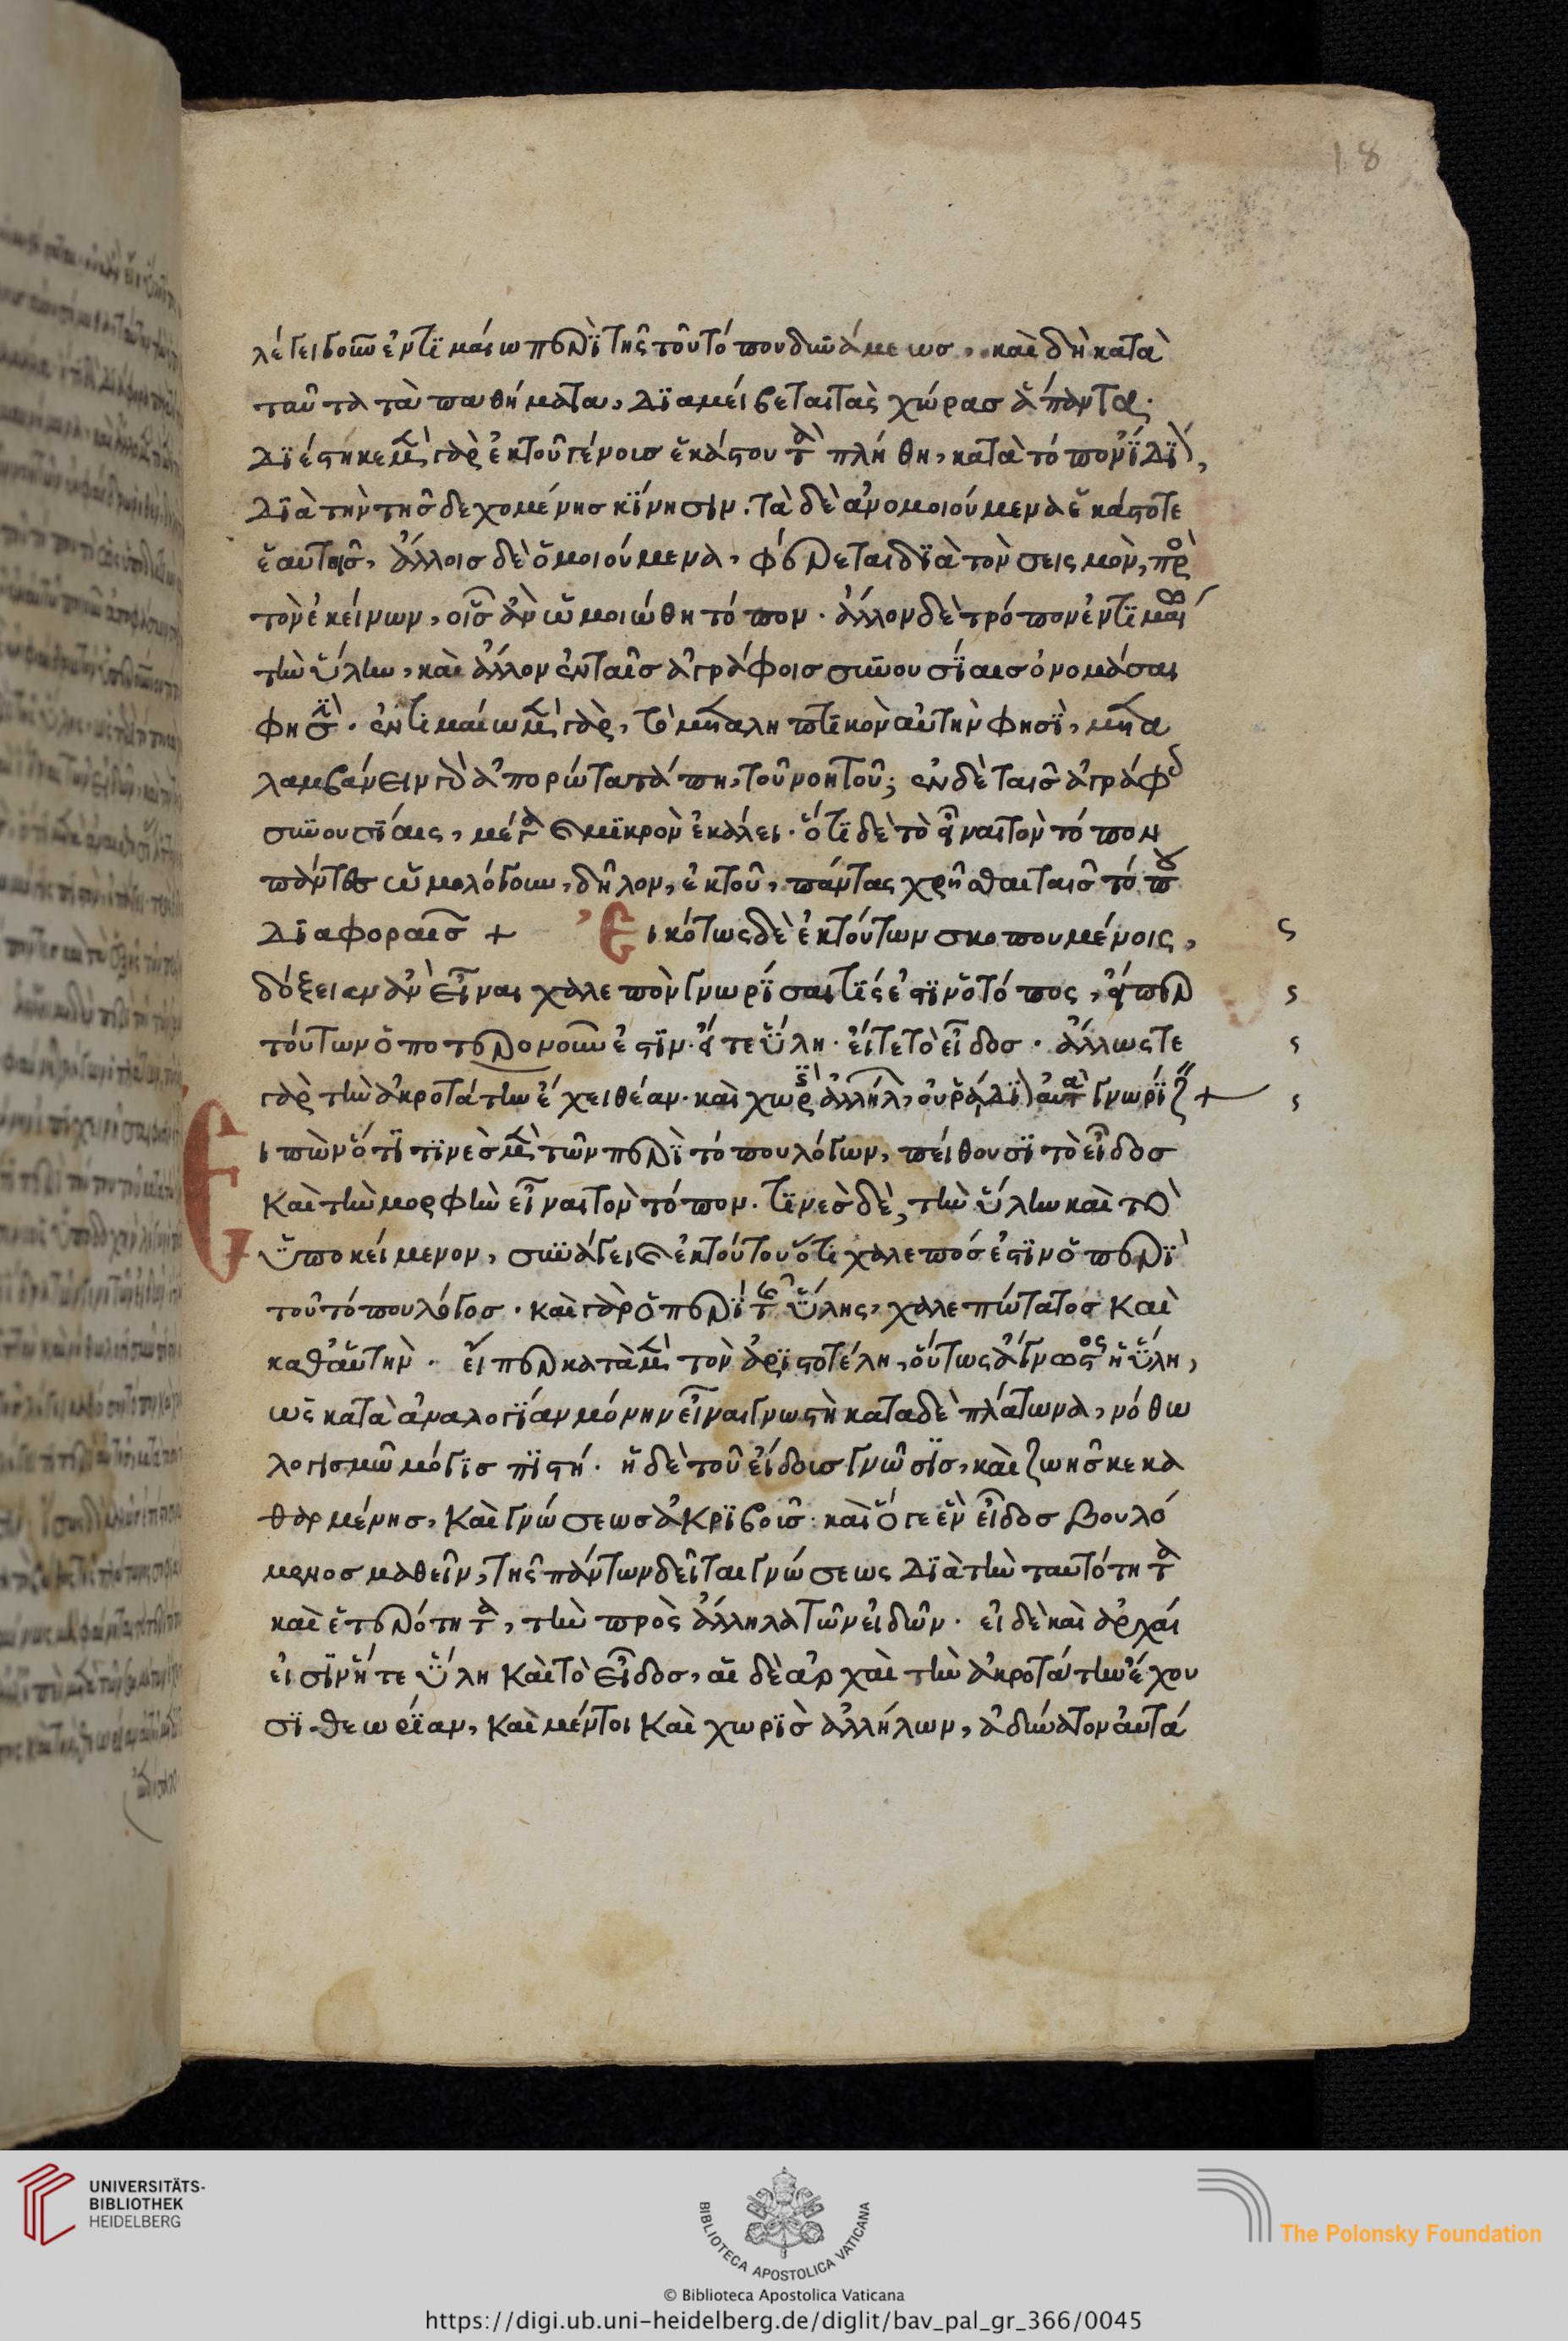 18
λέγει γοῦν ἐν τιμαίω περὶ τῆς τοῦ τόπου δυνάμεως, καὶ δὴ κατὰ
ταῦτα τὰ παθήματα, διαμείβεται τὰς χώρας ἅπαντα·
διέστηκε μὲν γὰρ ἐκ τοῦ γένους ἑκάστου τὰ πλήθη, κατὰ τόπον ἴδιον,
διὰ τὴν τῆς δεχομένης κίνησιν. τὰ δὲ ἀνομοιούμενα ἑκάστοτε
ἑαυτοῖς, ἄλλοις δὲ ὁμοιούμενα, φέρεται διὰ τὸν σεισμὸν, πρὸς
τὸν ἐκείνων, οἷς ἂν ὁμοιώθη τόπον. ἄλλον δὲ τρόπον ἐν τιμαίω
τὴν ὕλην, καὶ ἄλλον ἐν ταῖς ἀγράφοις συνουσίαις ὀνομάσαι
φησὶ. ἐν τιμαίω μὲν γὰρ, τὸ μεταληπτικὸν αὐτὴν φησὶ, μετα
λαμβάνειν γὰρ ἀπορώτατά πη, τοῦ νοητοῦ; ἐν δὲ ταῖς ἀγράφοις
συνουσίαις, μέγα καὶ μικρὸν ἐκάλει. ὅτι δὲ τὸ εἶναι τὸν τόπον
πάντες ὡμολόγουν, δῆλον, ἐκ τοῦ, πάντας χρῆσθαι ταῖς τόπου
διαφοραῖς + Εἰκότως δὲ ἐκ τούτων σκοπουμένοις,
δόξειεν ἂν εἶναι χαλεπὸν γνωρίσαι τίς ἐστὶν ὁ τόπος, εἴπερ
τούτων ὁποτερονοῦν ἐστὶν. εἴτε ὕλη. εἴτε τὸ εἶδος. ἄλλως τε
γὰρ τὴν ἀκροτάτην ἔχει θέαν. καὶ χωρὶς ἀλλήλων, οὐ ῥάδιον αὐτὰ γνωρίζειν +
Ειπὼν ὅτι τινὲς μὲν τῶν περὶ τόπου λόγων, πείθουσι τὸ εἶδος
καὶ τὴν μορφὴν εἶναι τὸν τόπον. τινὲς δὲ, τὴν ὕλην καὶ τὸ
ὑποκείμενον, συνάγει καὶ ἐκ τούτου ὅτι χαλεπός ἐστιν ὁ περὶ
τοῦ τόπου λόγος. καὶ γὰρ ὁ περὶ τῆς ὕλης, χαλεπώτατος καὶ
καθ' αὑτὴν. εἴπερ κατὰ μὲν τὸν ἀριστοτέλη, οὕτως ἄγνωστος ἡ ὕλη,
ὡς κατὰ ἀναλογίαν μόνην εἶναι γνωστὴ κατα δὲ πλάτωνα, νόθω
λογισμῶ μόγις πιστή. ἡ δὲ τοῦ εἴδους γνῶσις, καὶ ζωῆς κεκα
θαρμένης, καὶ γνώσεως ἀκριβοῦς. καὶ ὅ γε ἓν εἶδος βουλό
μενος μαθεῖν, τῆς πάντων δεῖται γνώσεως διὰ τὴν ταυτότητα
καὶ ἑτερότητα, τὴν πρὸς ἄλληλα τῶν εἰδῶν. εἰ δὲ καὶ ἀρχαί
εἰσιν ἥ τε ὕλη καὶ τὸ εἶδος, αἱ δὲ ἀρχαὶ τὴν ἀκροτάτην ἔχου
σι θεωρίαν, καὶ μέντοι καὶ χωρὶς ἀλλήλων, ἀδύνατον αὐτά
UNIVERSITÄTS-
BIBLIOTHEK
HEIDELBERG
BIBLIOTECA APOSTOLICA VATICANA
The Polonsky Foundation
© Biblioteca Apostolica Vaticana
https://digi.ub.uni-heidelberg.de/diglit/bav_pal_gr_366/0045